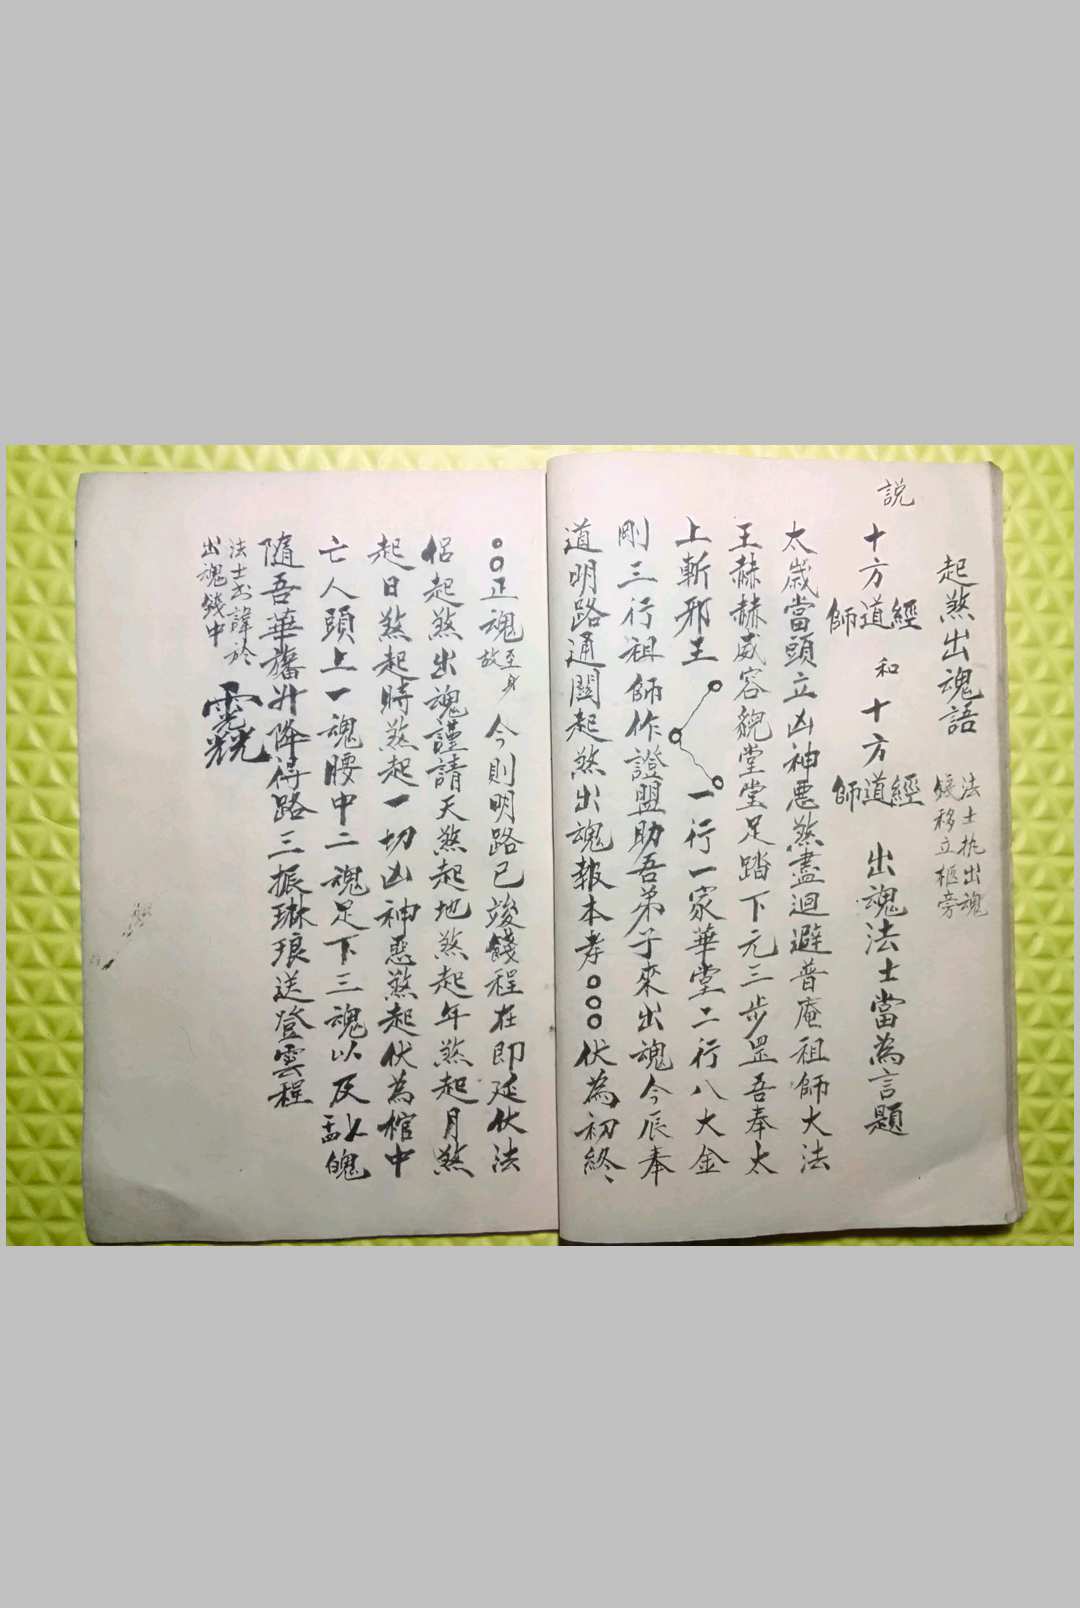 起煞出魂語 法士执出魂錢移立柩旁
説 十方師道經 和 十方師道經 出魂法士當為言題
太歲當頭立凶神惡煞盡迴避普庵祖師大法
王赫赫威容貌堂堂足踏下元三步罡吾奉太
上斬邪王 一行一家華堂二行八大金
剛三行祖師作證盟助吾弟子來出魂今辰奉
道明路通關起煞出魂報本孝○○○伏為初終
○○正魂 至身故 今則明路已竣餞程在即延伏法
侶起煞出魂謹請天煞起地煞起年煞起月煞
起日煞起時煞起一切凶神惡煞起伏為棺中
亡人頭上一魂腰中二魂足下三魂以及 魄
隨吾華旛升降得路三振琳琅送登雲程
法士書諱於
出魂錢中